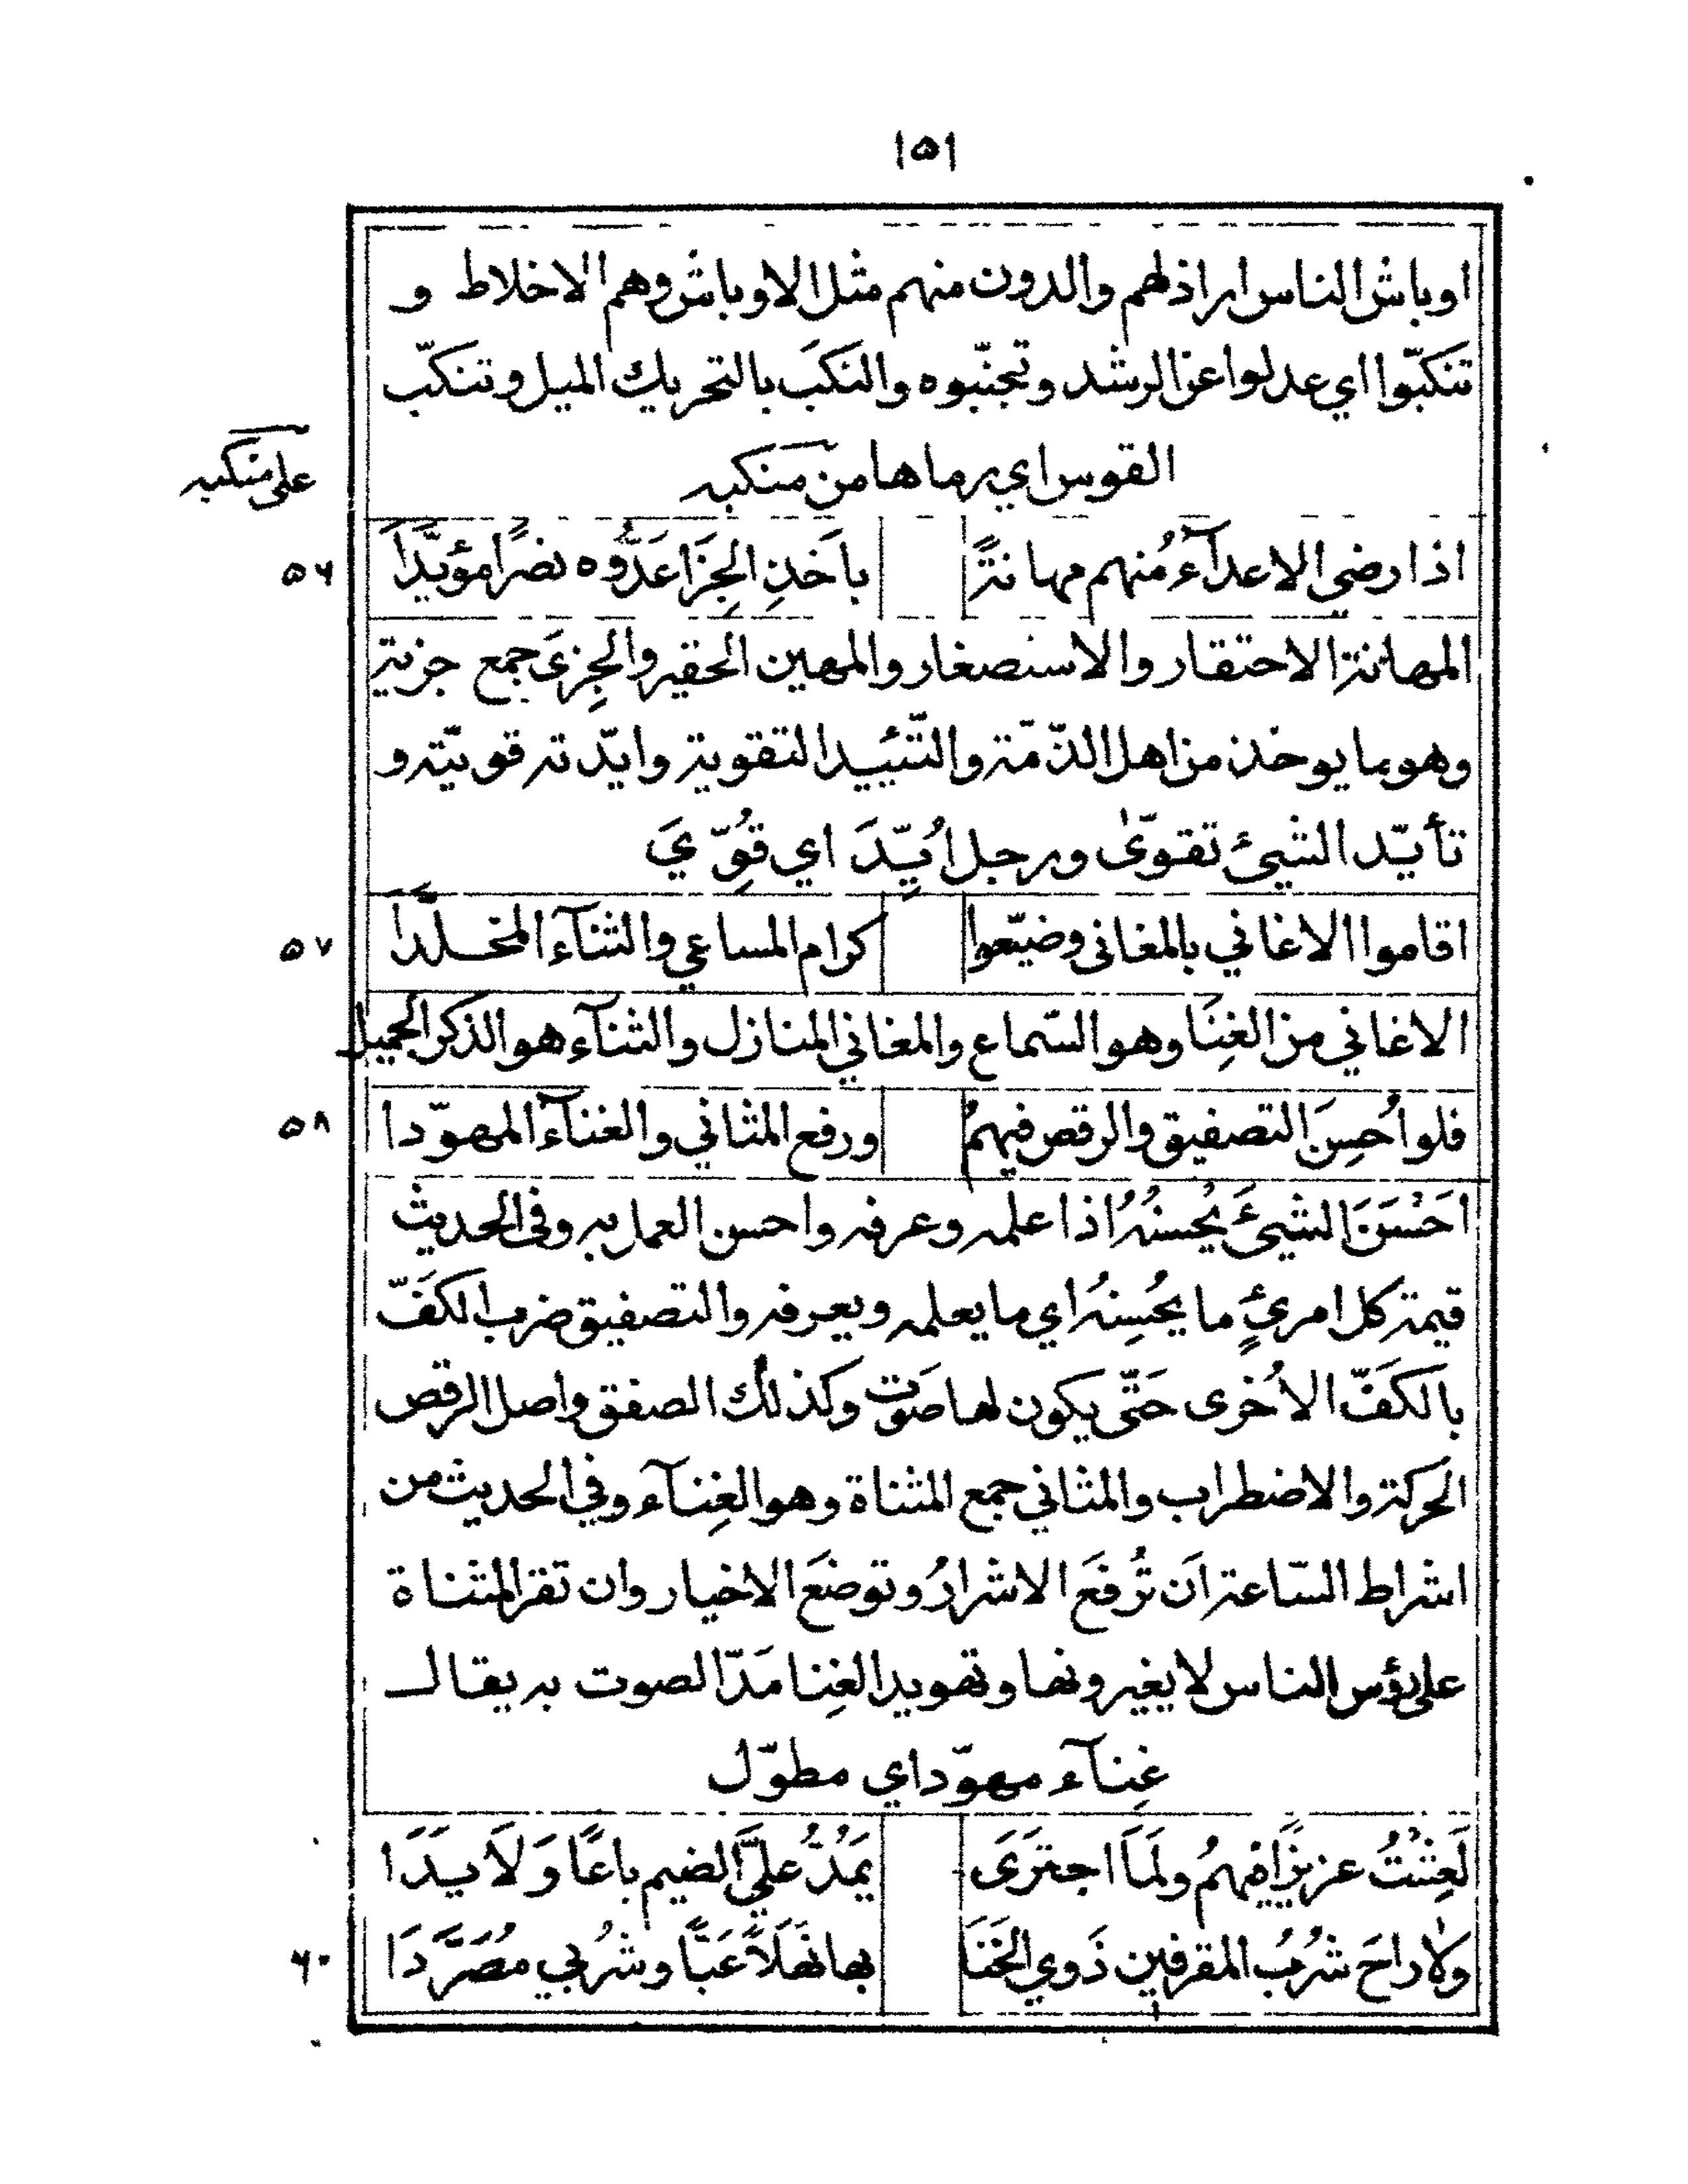 ١٥١
اوباش الناس اراذلهم والدون منهم مثل الاوباش وهم الاخلاط و
تنكّبوا اي عدلوا عن الرشد وتجنّبوه والنكَب بالتحريك الميل وتنكّب
القوس اي رماها من منكبه
على منكبه
اذا رضي الاعدآءُ منهم مهانةً باَخذِ الجِزَا عَدُّوه نصرًا مؤيَّدَا
٥٦
المهانة الاحتقار والاستصغار والمهين الحقير والجِزىَ جمع جزية
وهو ما يوخذ من اهل الذّمّة والتّئييد التقوية وايّدته قويّته و
تأيّد الشيئ تقوّىٰ ورجل ايِّدَ اي قُوِّيَ
اقاموا الاغاني بالمغانى وضيّعوا كرام المساعي والثنآء المخلَّدَا
٥٧
الاغاني من الغِنَا وهو السّماع والمغاني المنازل والثنآء هو الذكر الجميل
فلو اُحسِنَ التصفيق والرقص فيهمُ ورفع المثاني والغنآء المهوّدا
٥٨
احَسْنَ الشيئَ يُحسنُهُ اذا علمه وعرفه واحسن العمل به وفى الحديث
قيمة كل امرئٍ ما يُحسِنهُ اي ما يعلمه ويعرفه والتصفيق ضرب الكَفّ
بالكَفّ الاُخرى حَتّى يكون لها صَوت وكذلك الصفق واصل الرقص
الحَركة والاضطراب والمثاني جمع المثناة وهو الغِنآء وفي الحديث من
اشراط السّاعة اَن تُرفَعَ الاشرارُ وتوضَعَ الاخيار وان تقر المثناة
على رؤس الناس لا يغيرونها وتهويد الغِنا مَدّ الصوت به يقال
غِنآء مهوّد اي مطوّل
لَعِشْتُ عزيزًا فيهمُ ولَمَا اجترَىَ يَمُدُّ عليَّ الضيم باعًا وَلاَ يَدَا
ولا راحَ شُربُ المقرفين ذَوي الخَنَا بها نَهَلاً عَبًّا وشُربي مُصَرَّدَا
٦٠